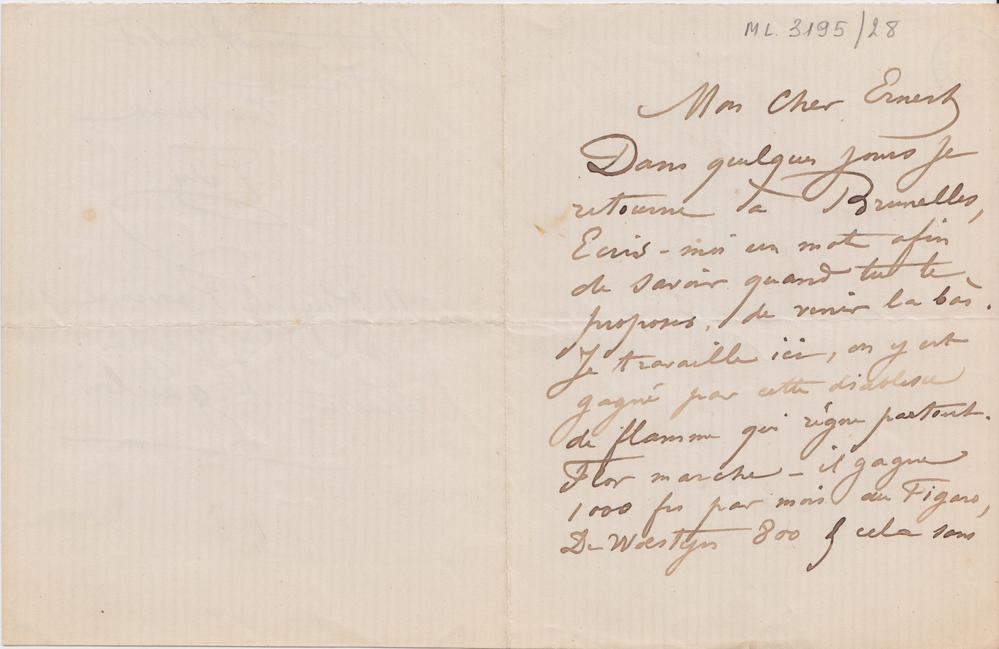 ML. 3195/28
Mon cher Ernest
Dans quelques jours je
retourne à Bruxelles,
Ecris-moi un mot afin
de savoir quand tu te
proposes, de venir la bàs.
Je travaille ici, on y est
gagné par cette diablesse
de flamme qui règne partout.
Flor marche - il gagne
1000 frs par mois au Figaro,
De Woestyn 800 & cela sans